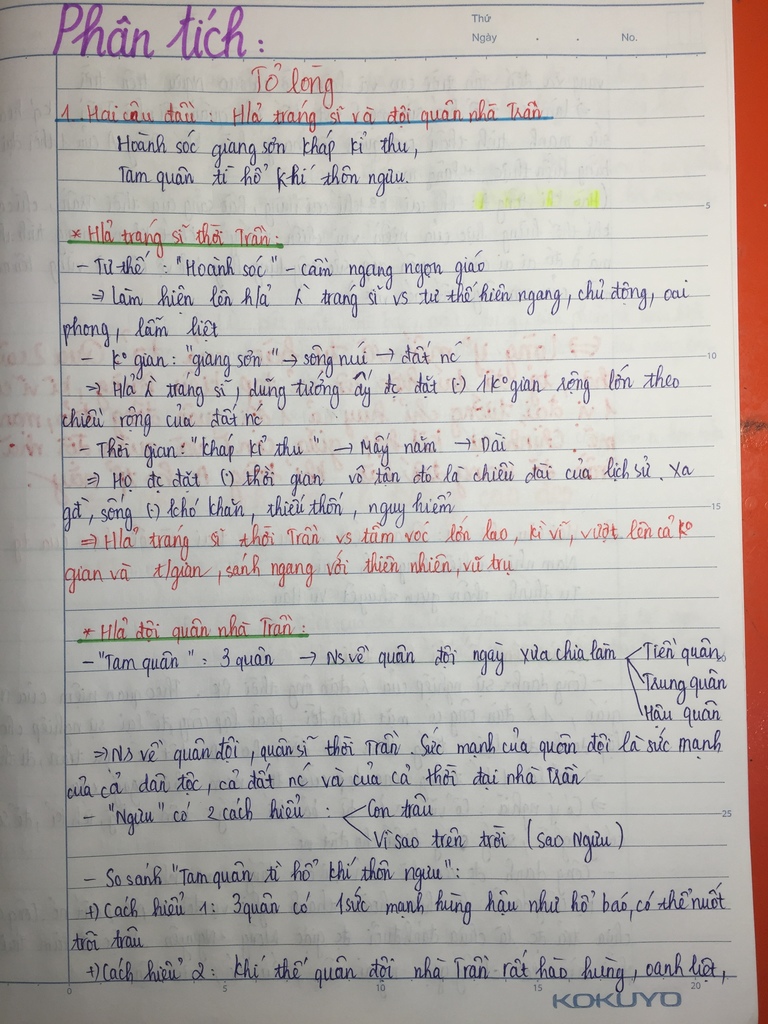 Thứ
Ngày . . No.
Phân tích:
Tỏ lòng
1. Hai câu đầu: H/ả tráng sĩ và đội quân nhà Trần
Hoành sóc giang sơn kháp kỉ thu,
Tam quân tì hổ khí thôn ngưu.
5
* H/ả tráng sĩ thời Trần:
- Tư thế: "Hoành sóc" - cầm ngang ngọn giáo
⇒ Làm hiện lên h/ả 1 tráng sĩ vs tư thế hiên ngang, chủ động, oai
phong, lẫm liệt
- k° gian: "giang sơn" → sông núi → đất nc
10
⇒ H/ả 1 tráng sĩ, dũng tướng ấy đc đặt (·) 1 k° gian rộng lớn theo
chiều rộng của đất nc
- Thời gian: "kháp kỉ thu" → Mấy năm → Dài
⇒ Họ đc đặt (·) thời gian vô tận đó là chiều dài của lịch sử. Xa
15
gđ, sống (·) khó khăn, thiếu thốn, nguy hiểm
⇒ H/ả tráng sĩ thời Trần vs tầm vóc lớn lao, kì vĩ, vượt lên cả k°
gian và t/gian, sánh ngang với thiên nhiên, vũ trụ
* H/ả đội quân nhà Trần:
- "Tam quân": 3 quân → Ns về quân đội ngày xưa chia làm Tiền quân
Trung quân
Hậu quân
⇒ Ns về quân đội, quân sĩ thời Trần. Sức mạnh của quân đội là sức mạnh
của cả dân tộc, cả đất nc và của cả thời đại nhà Trần
- "Ngưu" có 2 cách hiểu: Con trâu
25
Vì sao trên trời (Sao Ngưu)
- So sánh "Tam quân tì hổ khí thôn ngưu":
+) Cách hiểu 1: 3 quân có 1 sức mạnh hùng hậu như hổ báo, có thể nuốt
trôi trâu
+) Cách hiểu 2: khí thế quân đội nhà Trần rất hào hùng, oanh liệt,
0 5 10 15 20
KOKUYO